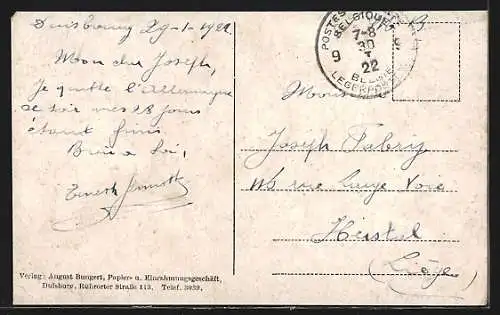 Duisbourg 29-1-1922
Mon cher Joseph,
Je quitte l'Allemagne
ce soir mes 28 jours
étant finis
Bien à toi,
Ernest
Verlag: August Bungert, Papier- u. Einrahmungsgeschäft,
Duisburg, Ruhrorter Straße 113. Telef. 3059.
POSTES BELGIQUE
7-8
9 30 9
I
22
BELGIE
LEGERPOST
S. M. B.
Monsieur
Joseph Fabry
rue Large Voie
Herstal
(Liège)